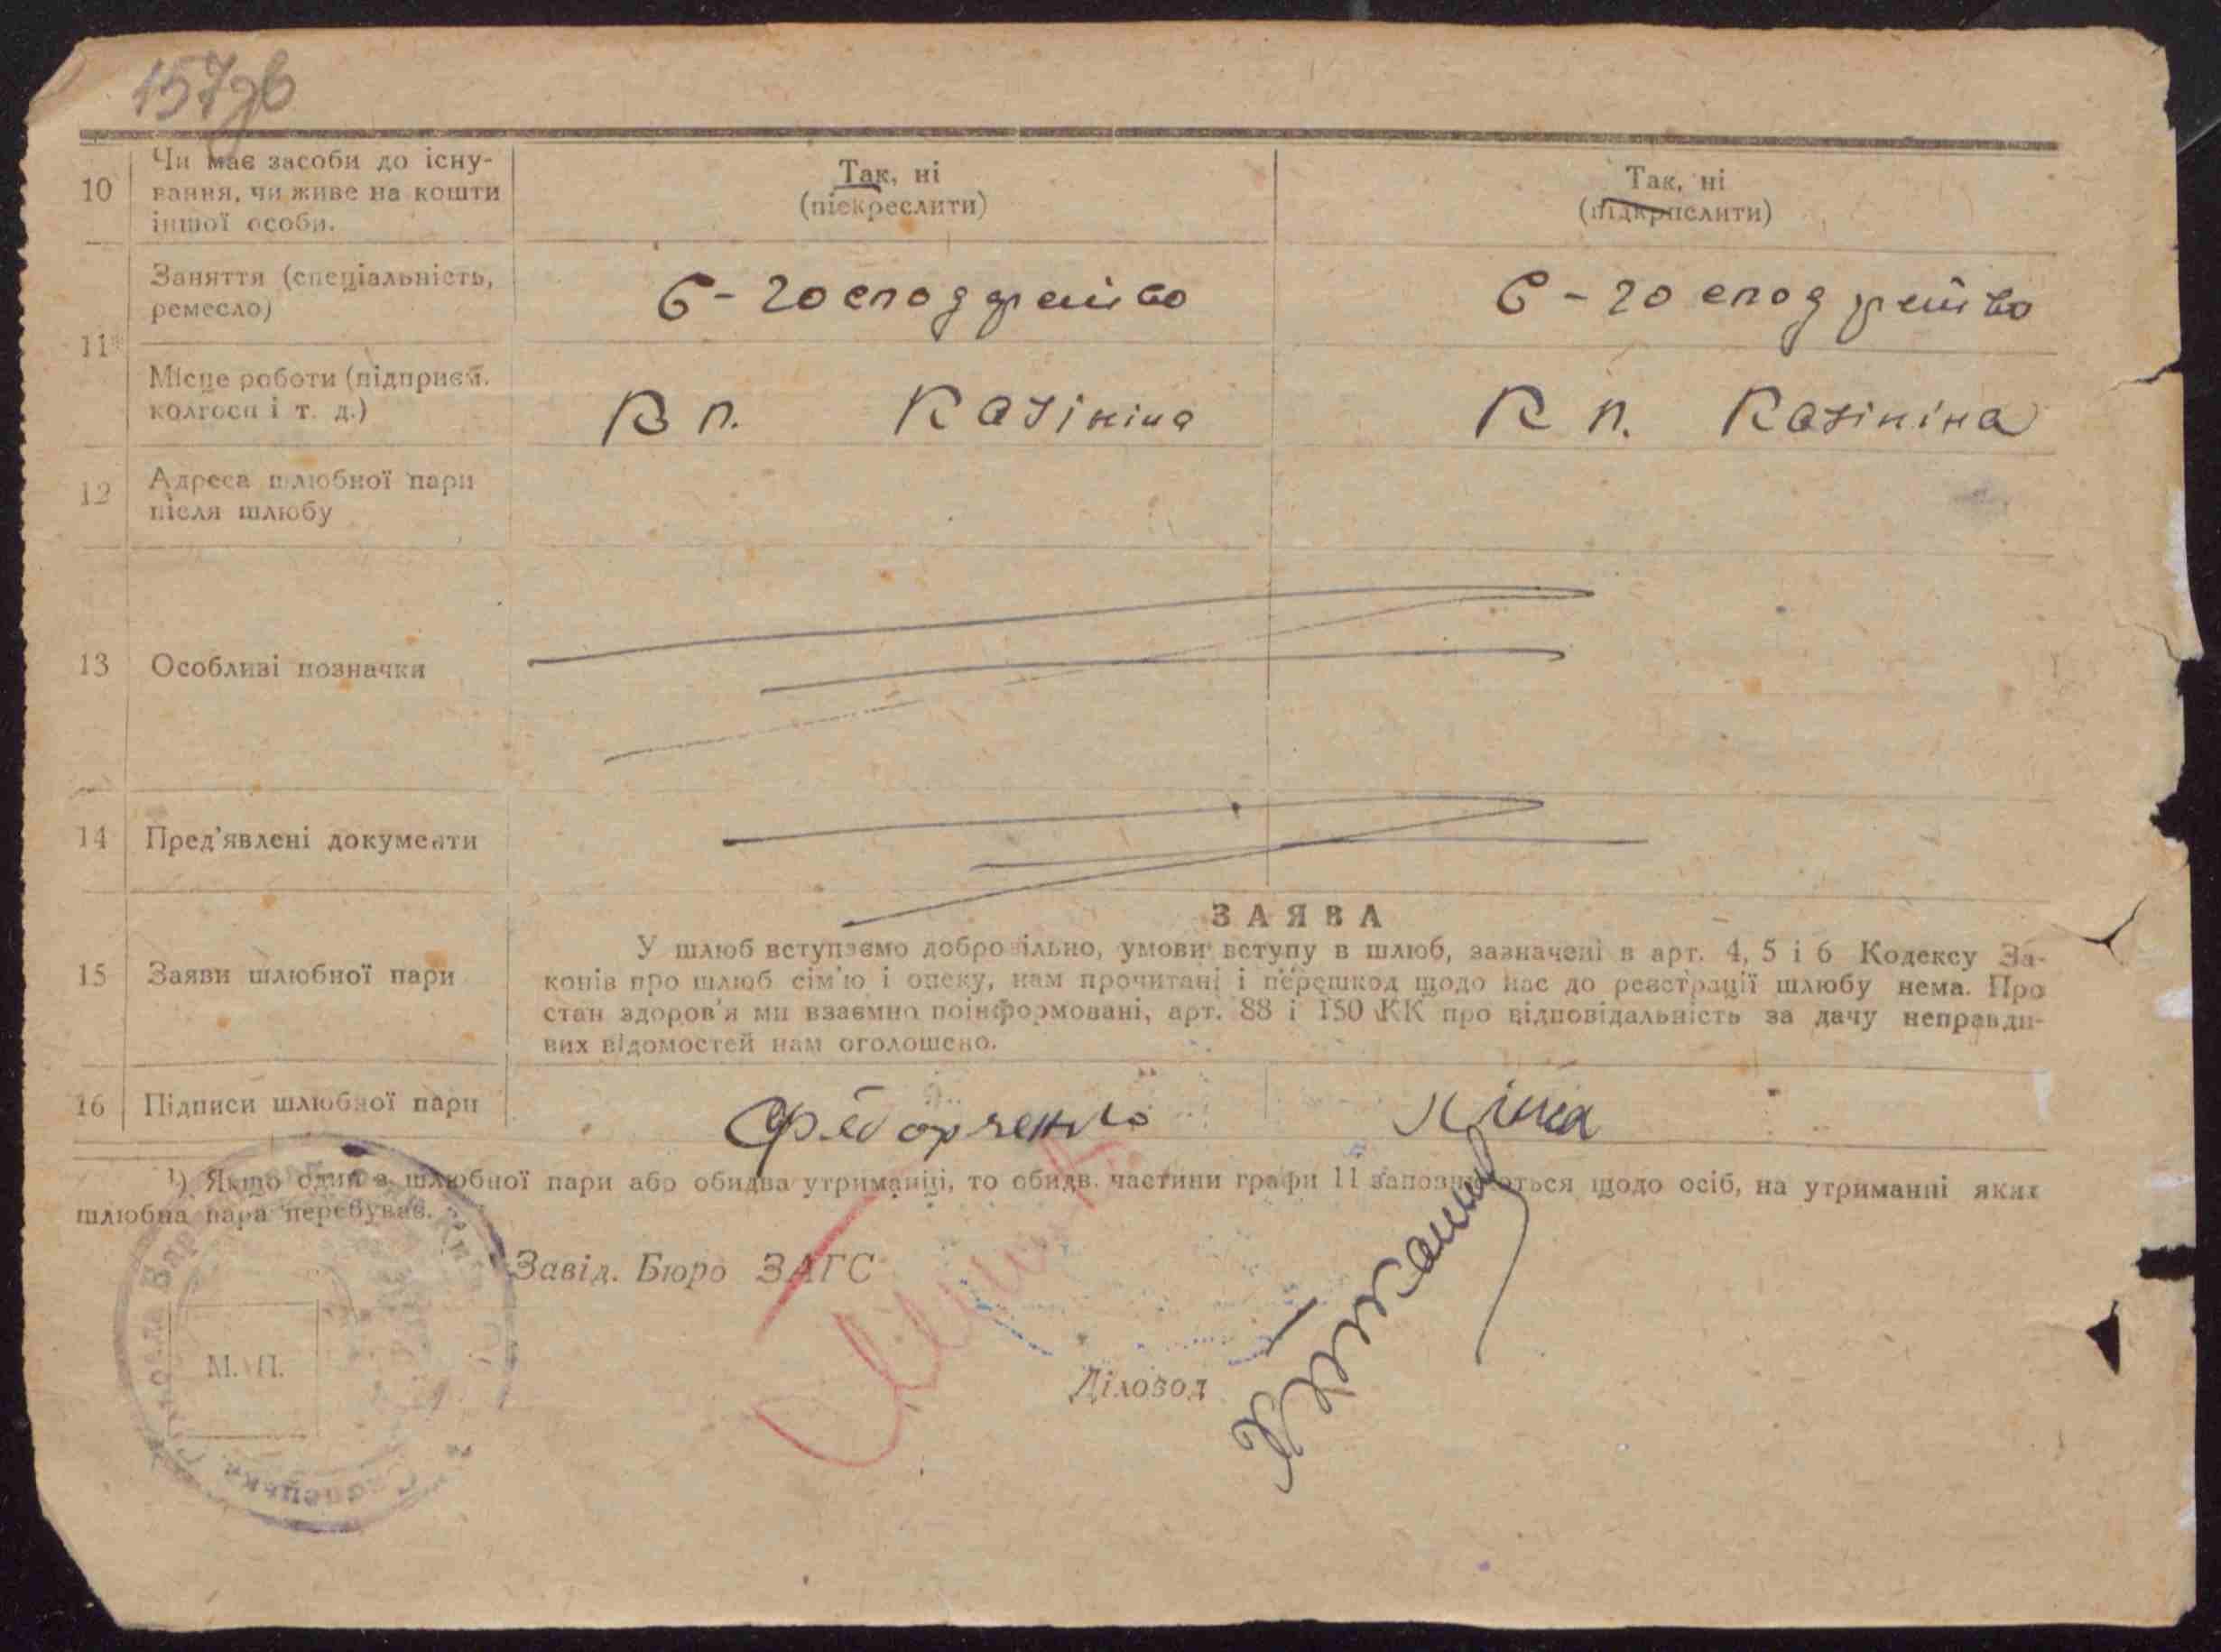 157зв
10 Чи має засоби до існу- Так, ні Так, ні
вання, чи живе на кошти (піекреслити) (підкрпслити)
іншої особи.
Заняття (спеціальність, С-господарство С-господарство
ремесло)
11
Місце роботи (підприєм. К п. Калініна К п. Калініна
колгосп і т. д.)
12 Адреса шлюбної пари
після шлюбу
13 Особливі позначки
14 Пред'явлені документи
ЗАЯВА
У шлюб вступаємо добровільно, умови вступу в шлюб, зазначені в арт. 4, 5 і 6 Кодексу За-
15 Заяви шлюбної пари конів про шлюб сім'ю і опеку, нам прочитані і перешкод щодо нас до реєстрації шлюбу нема. Про
стан здоров'я ми взаємно поінформовані, арт. 88 і 150 КК про відповідальність за дачу неправди-
вих відомостей нам оголошено.
16 Підписи шлюбної пари Федорченко
¹) Якщо один з шлюбної пари або обидва утриманці, то обидв. частини графи 11 заповнюються щодо осіб, на утриманні яких
шлюбна пара перебуває.
Завід. Бюро ЗАГС
М. П.
Діловод